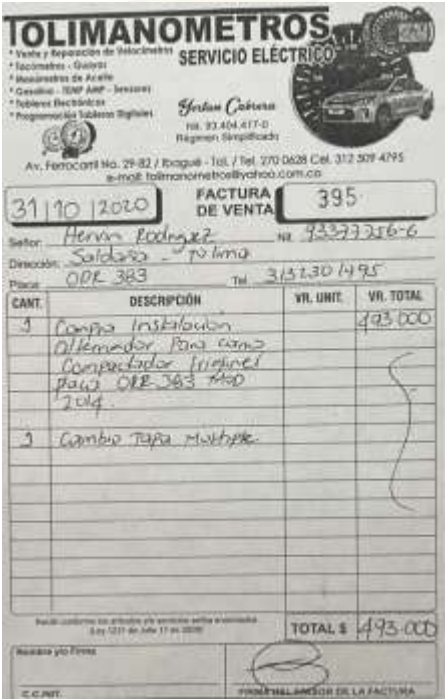 TOLIMANOMETROS
SERVICIO ELÉCTRICO
* Venta y Reparación de Velocímetros
* Tacómetros - Guayas
* Manómetros de Aceite
* Gasolina - TEMP AMP - Sensores
* Tableros Electrónicos
* Programación Tableros Digitales
Yertan Cabrera
Nit. 93.404.417-0
Régimen Simplificado
Av. Ferrocarril No. 29-82 / Ibagué - Tol. / Tel. 270 0628 Cel. 312 309 4795
e-mail: tolimanometros@yahoo.com.co
31 10 2020
FACTURA DE VENTA
395
Señor: Hervin Rodriguez Nit 93377356-6
Dirección: Saldaña - Tolima
Placa: ODR 383 Tel. 3132301495
CANT. DESCRIPCIÓN VR. UNIT. VR. TOTAL
1 Compra Instalacion 493 000
Alternador Para Carro
Compactador
Placa 383 Mod
2014.
1 Cambio Tapa Multiple
Recibí conforme los artículos y/o servicios arriba enunciados
(Ley 1231 de Julio 17 de 2008)
TOTAL $ 493.000
Nombre y/o Firma
C.C./NIT.
FIRMA DEL EMISOR DE LA FACTURA